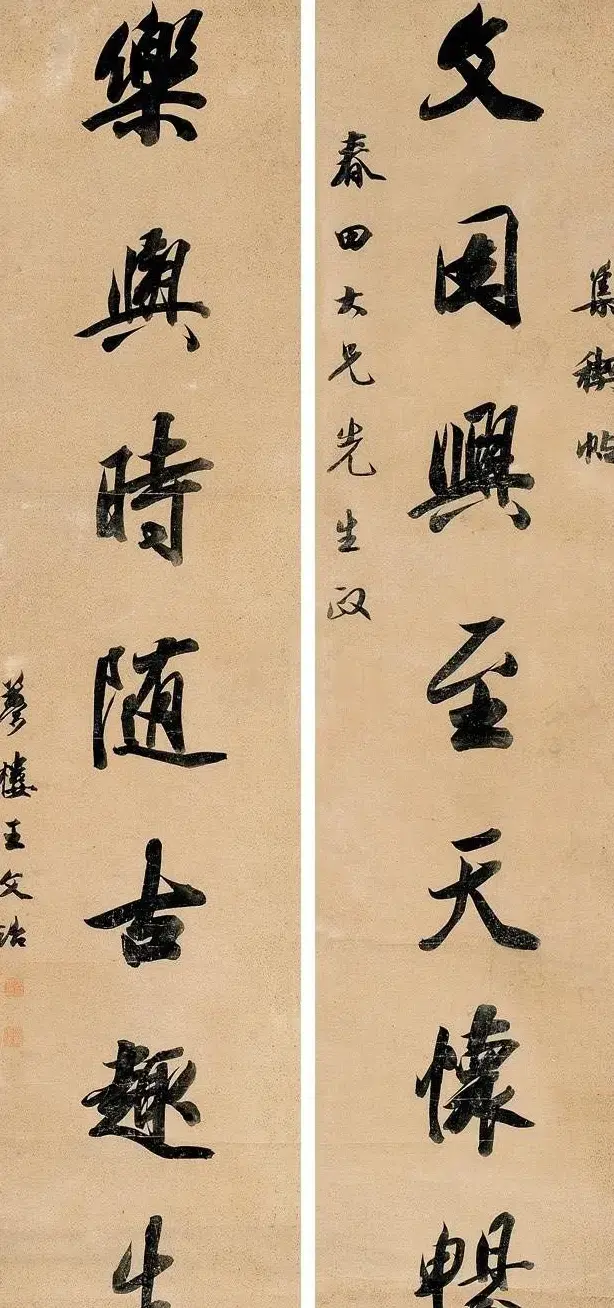 集禊帖
文因興至天懷暢
春田大兄先生政
樂與時随古趣生
夢樓王文治